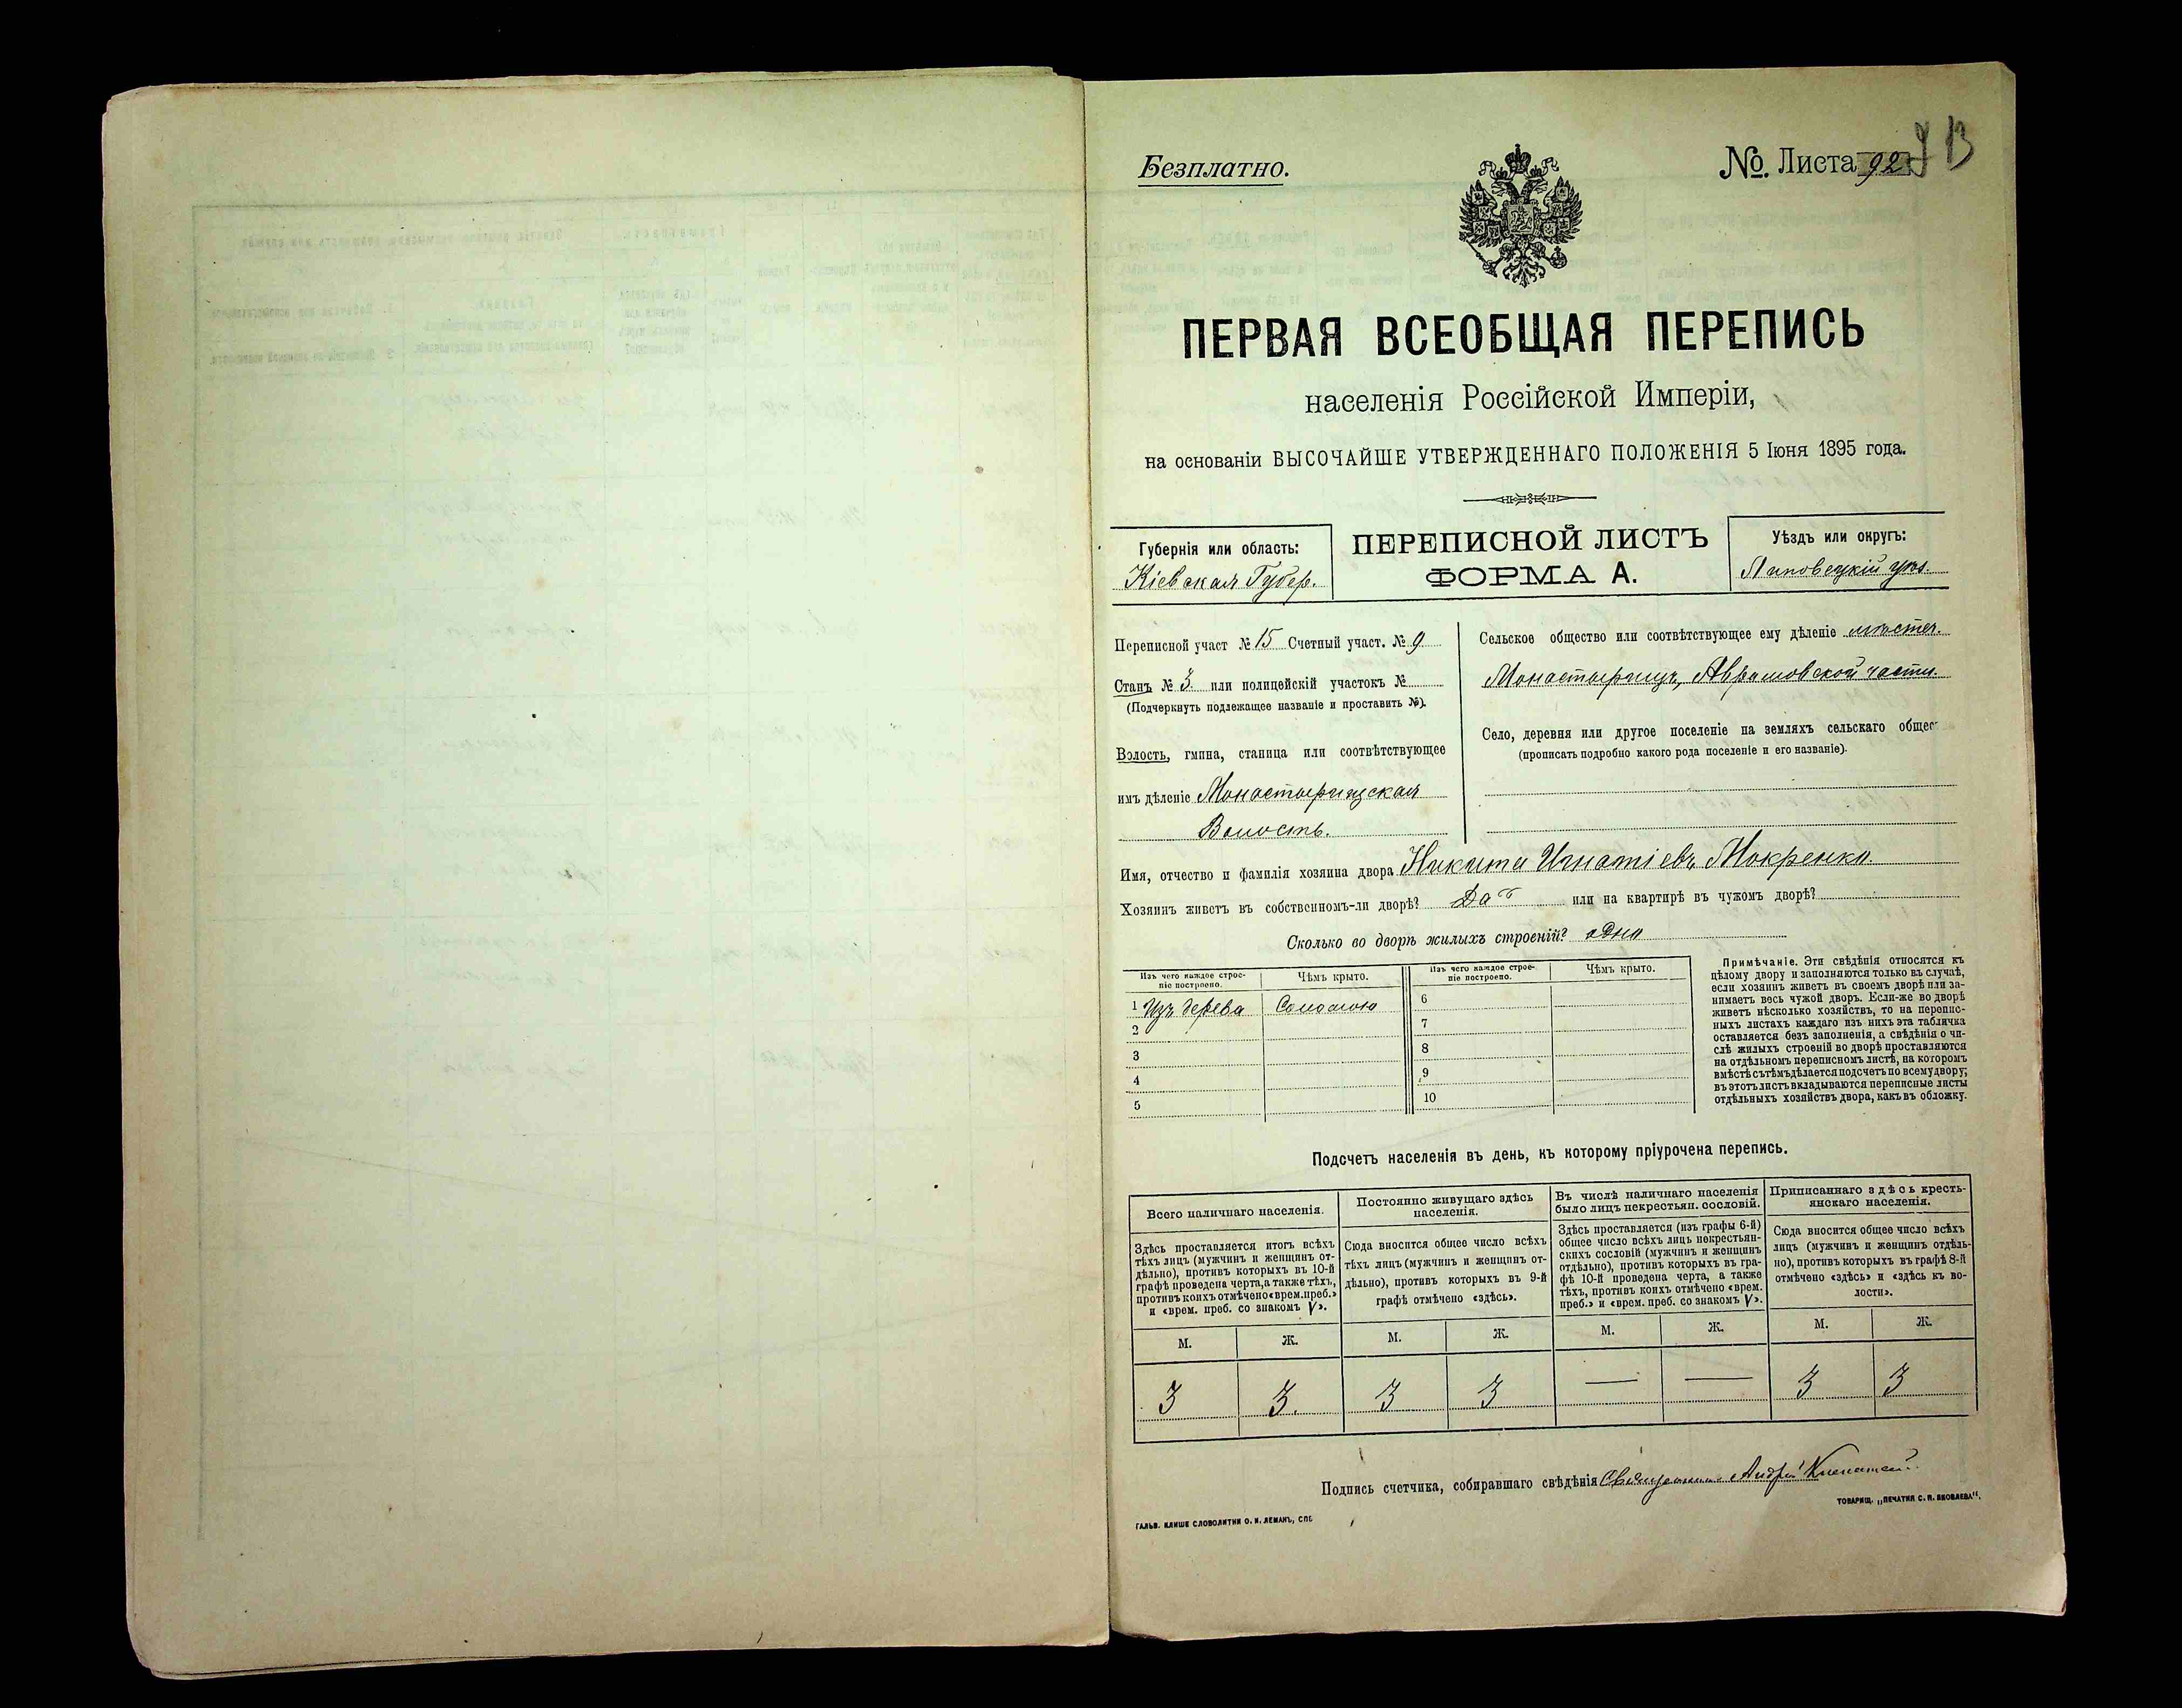 Безплатно.
№. Листа 92
ПЕРВАЯ ВСЕОБЩАЯ ПЕРЕПИСЬ
населенія Россійской Имперіи,
на основаніи ВЫСОЧАЙШЕ УТВЕРЖДЕННАГО ПОЛОЖЕНІЯ 5 Іюня 1895 года.
Губернія или область:
Кіевская Губер.
ПЕРЕПИСНОЙ ЛИСТЪ
ФОРМА А.
Уѣздъ или округъ:
Липовецкій уѣз.
Переписной участ № 15 Счетный участ. № 9
Станъ № 3. или полицейскій участокъ №
(Подчеркнуть подлежащее названіе и проставить №).
Волость, гмина, станица или соотвѣтствующее
имъ дѣленіе Монастырищская
Волость.
Сельское общество или соотвѣтствующее ему дѣленіе мѣстеч.
Монастырищъ, Аврамовской части.
Село, деревня или другое поселеніе на земляхъ сельскаго общес
(прописать подробно какого рода поселеніе и его названіе).
Имя, отчество и фамилія хозяина двора Никита Игнатіевъ Мокренко.
Хозяинъ живетъ въ собственномъ-ли дворѣ? Да или на квартирѣ въ чужомъ дворѣ?
Сколько во дворѣ жилыхъ строеній? одно
Изъ чего каждое строе-
ніе построено.
Чѣмъ крыто.
Изъ чего каждое строе-
ніе построено.
Чѣмъ крыто.
1 Изъ дерева Соломою
2
3
4
5
6
7
8
9
10
Примѣчаніе. Эти свѣдѣнія относятся къ
цѣлому двору и заполняются только въ случаѣ,
если хозяинъ живетъ въ своемъ дворѣ или за-
нимаетъ весь чужой дворъ. Если-же во дворѣ
живетъ нѣсколько хозяйствъ, то на перепис-
ныхъ листахъ каждаго изъ нихъ эта табличка
оставляется безъ заполненія, а свѣдѣнія о чи-
слѣ жилыхъ строеній во дворѣ проставляются
на отдѣльномъ переписномъ листѣ, на которомъ
вмѣстѣ съ тѣмъ дѣлается подсчетъ по всему двору;
въ этотъ листъ вкладываются переписные листы
отдѣльныхъ хозяйствъ двора, какъ въ обложку.
Подсчетъ населенія въ день, къ которому пріурочена перепись.
Всего наличнаго населенія.
Здѣсь проставляется итогъ всѣхъ
тѣхъ лицъ (мужчинъ и женщинъ от-
дѣльно), противъ которыхъ въ 10-й
графѣ проведена черта, а также тѣхъ,
противъ коихъ отмѣчено «врем. преб.»
и «врем. преб. со знакомъ V».
Постоянно живущаго здѣсь
населенія.
Сюда вносится общее число всѣхъ
тѣхъ лицъ (мужчинъ и женщинъ от-
дѣльно), противъ которыхъ въ 9-й
графѣ отмѣчено «здѣсь».
Въ числѣ наличнаго населенія
было лицъ некрестьян. сословій.
Здѣсь проставляется (изъ графы 6-й)
общее число всѣхъ лицъ некрестьян-
скихъ сословій (мужчинъ и женщинъ
отдѣльно), противъ которыхъ въ гра-
фѣ 10-й проведена черта, а также
тѣхъ, противъ коихъ отмѣчено «врем.
преб.» и «врем. преб. со знакомъ V».
Приписаннаго здѣсь кресть-
янскаго населенія.
Сюда вносится общее число всѣхъ
лицъ (мужчинъ и женщинъ отдѣль-
но), противъ которыхъ въ графѣ 8-й
отмѣчено «здѣсь» и «здѣсь къ во-
лости».
М. Ж. М. Ж. М. Ж. М. Ж.
3 3. 3 3 — — 3 3
Подпись счетчика, собиравшаго свѣдѣнія Священникъ Андрей
ГАЛЬВ. КЛИШЕ СЛОВОЛИТНИ О. И. ЛЕМАНЪ, СПБ
ТОВАРИЩ. „ПЕЧАТНЯ С. П. ЯКОВЛЕВА“.